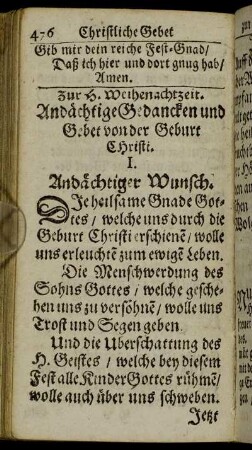 476 Christliche Gebet
Gib mir dein reiche Fest-Gnad/
Daß ich hier und dort gnug hab/
Amen.
Zur H. Weihenachtzeit.
Andächtige Gedancken und
Gebet von der Geburt
CHristi.
I.
Andächtiger Wunsch.
DJe heilsame Gnade Got-
tes/ welche uns durch die
Geburt Christi erschienẽ/ wolle
uns erleuchtẽ zum ewigẽ Leben.
Die Menschwerdung des
Sohns Gottes/ welche gesche-
hen uns zu versöhnẽ/ wolle uns
Trost und Segen geben.
Und die Uberschattung des
H. Geistes/ welche bey diesem
Fest alle Kinder Gottes rühmẽ/
wolle auch über uns schweben.
Jetzt